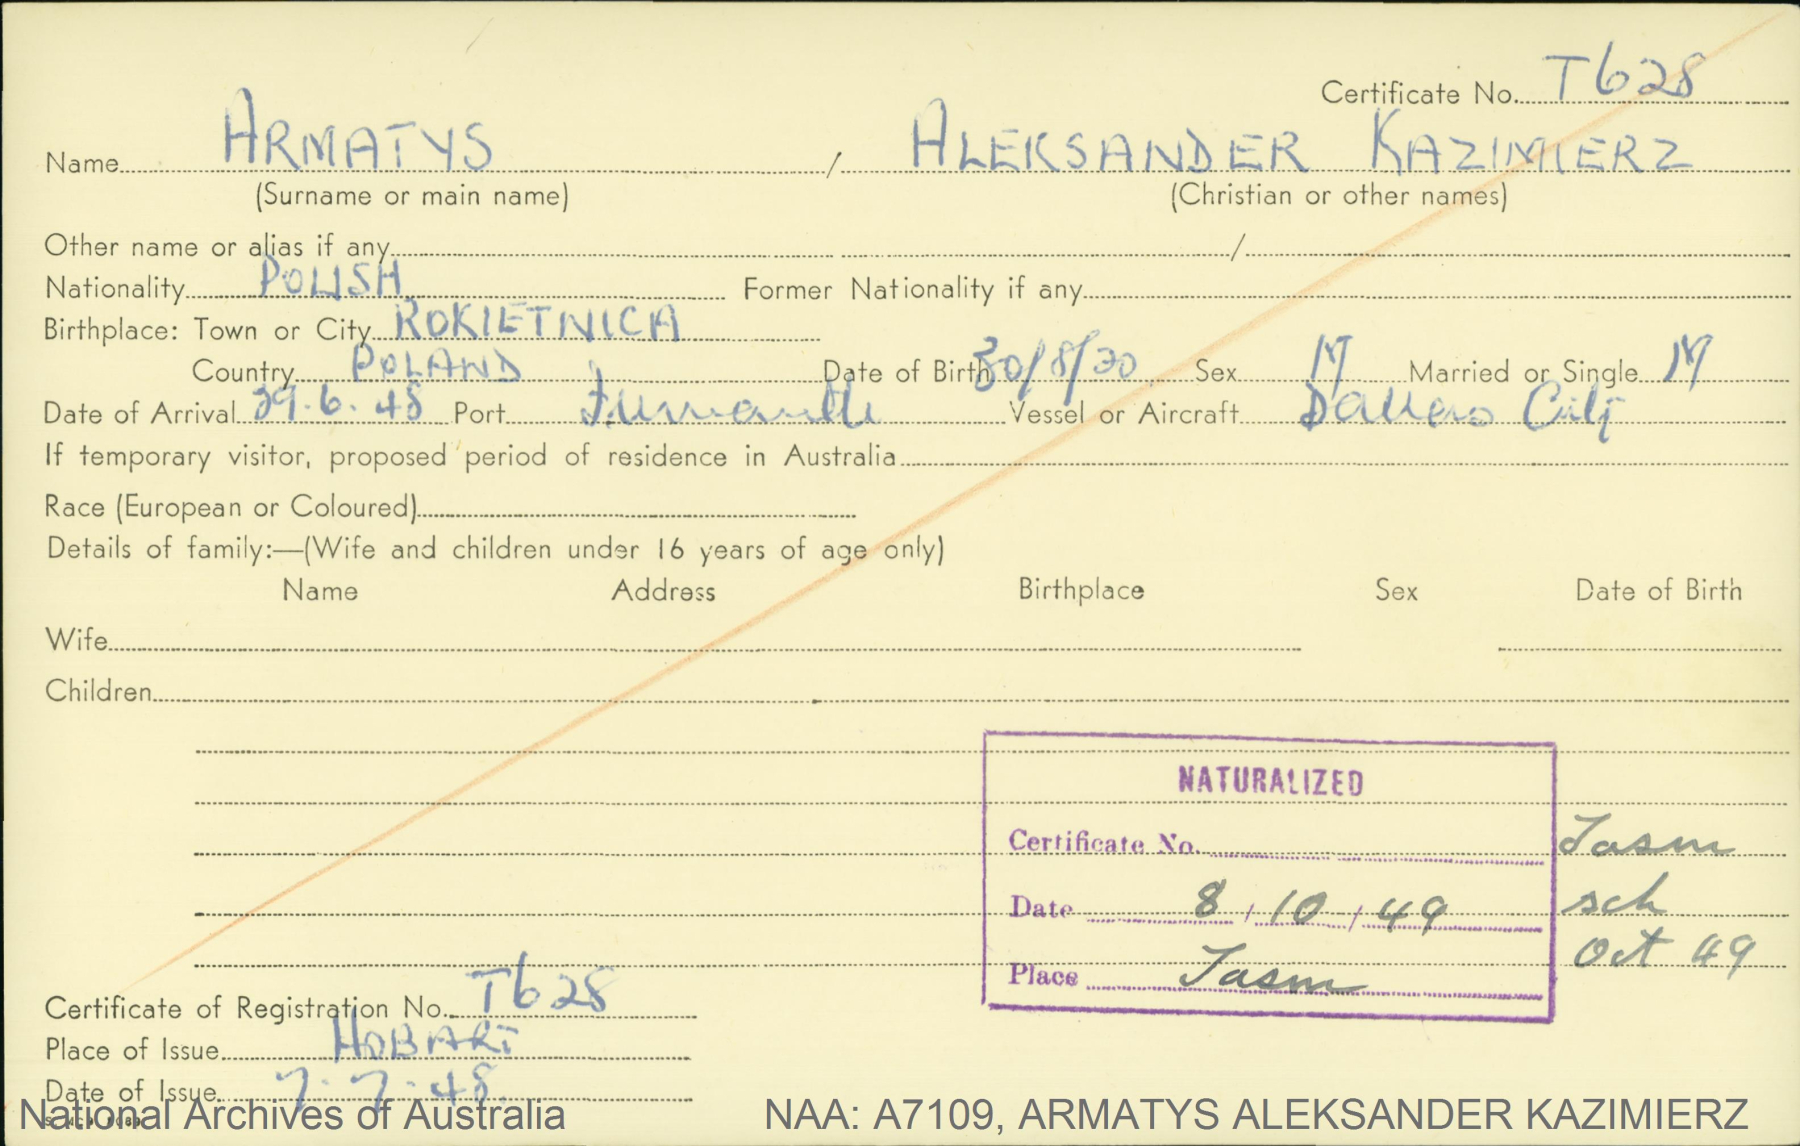 Certificate No. T628
Name ARMATYS / ALEKSANDER KAZIMIERZ
(Surname or main name) (Christian or other names)
Other name or alias if any /
Nationality POLISH Former Nationality if any
Birthplace: Town or City ROKIETNICA
Country POLAND Date of Birth 30/8/20 Sex M Married or Single M
Date of Arrival 29.6.48 Port Fremantle Vessel or Aircraft City
If temporary visitor, proposed period of residence in Australia
Race (European or Coloured)
Details of family:—(Wife and children under 16 years of age only)
Name Address Birthplace Sex Date of Birth
Wife
Children
NATURALIZED
Certificate No. Tasm
Date 8/10/49 sch
Oct 49
Place Tasm
Certificate of Registration No. T628
Place of Issue HOBART
Date of Issue 7.7.48.
National Archives of Australia NAA: A7109, ARMATYS ALEKSANDER KAZIMIERZ